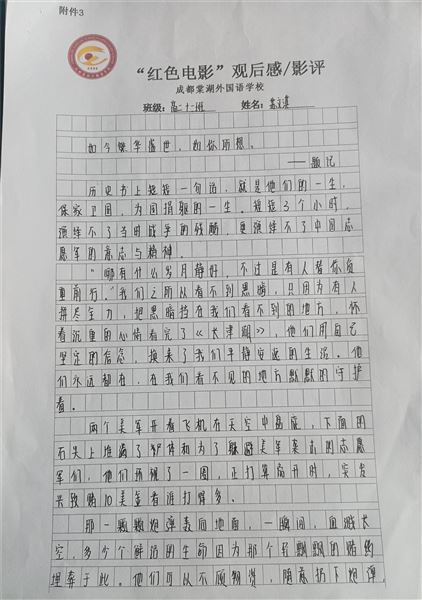 附件3
“红色电影”观后感/影评
成都棠湖外国语学校
班级：高一十一班 姓名：
如今繁华盛世，如你所愿。
——题记
历史书上短短一句话，就是他们的一生，
保家卫国，为国捐躯的一生。短短3个小时，
演绎不了当时战争的残酷，更演绎不了中国志
愿军的意志与精神。
“哪有什么岁月静好，不过是有人替你负
重前行。”我们之所以看不到黑暗，只因为有人
拼尽全力，把黑暗挡在我们看不到的地方，怀
着沉重的心情看完了《长津湖》，他们用自己
坚定的信念，换来了我们平静安逸的生活。他
们永远都在，在我们看不见的地方默默的守护
着。
两个美军开着飞机在天空中盘旋，下面的
石头上堆满了尸体和为了躲避美军袭击的志愿
军们，他们环视了一圈，正打算离开时，突发
兴致赌10美金看谁打得多。
那一颗颗炮弹轰向地面，一瞬间，血溅长
空，多少个鲜活的生命因为那个轻飘飘的赌约
埋葬于此。他们可以不顾物资，随意扔下炮弹，